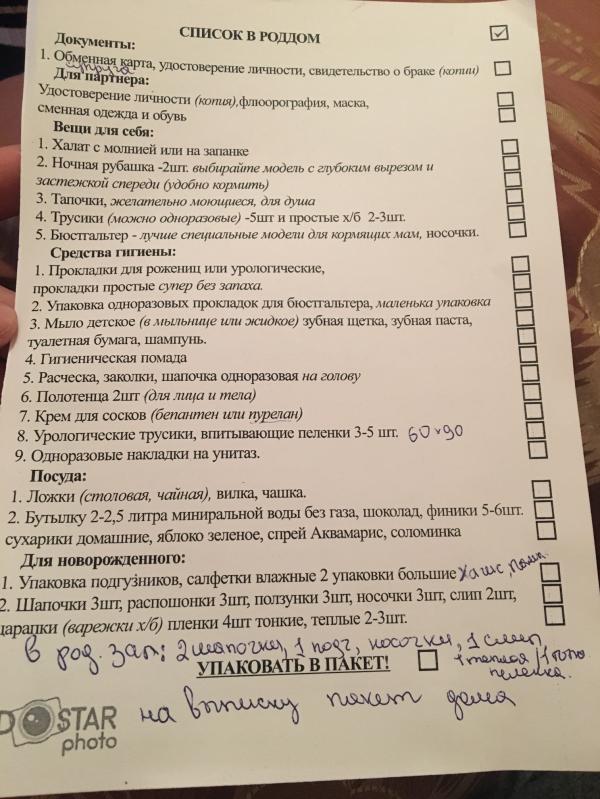 СПИСОК В РОДДОМ
Документы:
1. Обменная карта, удостоверение личности, свидетельство о браке (копии)
супруга
Для партнера:
Удостоверение личности (копия),флюорография, маска,
сменная одежда и обувь
Вещи для себя:
1. Халат с молнией или на запанке
2. Ночная рубашка -2шт. выбирайте модель с глубоким вырезом и
застежкой спереди (удобно кормить)
3. Тапочки, желательно моющиеся, для душа
4. Трусики (можно одноразовые) -5шт и простые х/б 2-3шт.
5. Бюстгальтер - лучше специальные модели для кормящих мам, носочки.
Средства гигиены:
1. Прокладки для рожениц или урологические,
прокладки простые супер без запаха.
2. Упаковка одноразовых прокладок для бюстгальтера, маленька упаковка
3. Мыло детское (в мыльнице или жидкое) зубная щетка, зубная паста,
туалетная бумага, шампунь.
4. Гигиеническая помада
5. Расческа, заколки, шапочка одноразовая на голову
6. Полотенца 2шт (для лица и тела)
7. Крем для сосков (бепантен или пурелан)
8. Урологические трусики, впитывающие пеленки 3-5 шт. 60×90
9. Одноразовые накладки на унитаз.
Посуда:
1. Ложки (столовая, чайная), вилка, чашка.
2. Бутылку 2-2,5 литра миниральной воды без газа, шоколад, финики 5-6шт.
сухарики домашние, яблоко зеленое, спрей Аквамарис, соломинка
Для новорожденного:
1. Упаковка подгузников, салфетки влажные 2 упаковки большие
2. Шапочки 3шт, распошонки 3шт, ползунки 3шт, носочки 3шт, слип 2шт,
царапки (варежки х/б) пленки 4шт тонкие, теплые 2-3шт.
в род. зал: 2 шапочки, 1 подг, носочки, 1 слип,
1 теплая
пеленка.
УПАКОВАТЬ В ПАКЕТ!
на выписку пакет дома
D STAR
photo